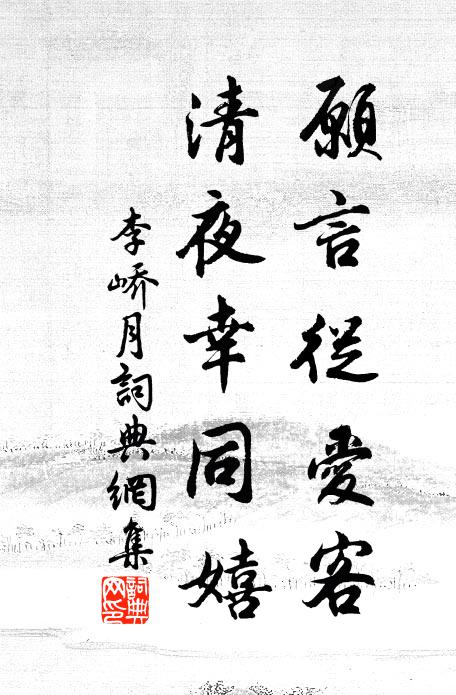 願言從愛客
清夜幸同嬉
李嶠月詞典網集
詞典網印